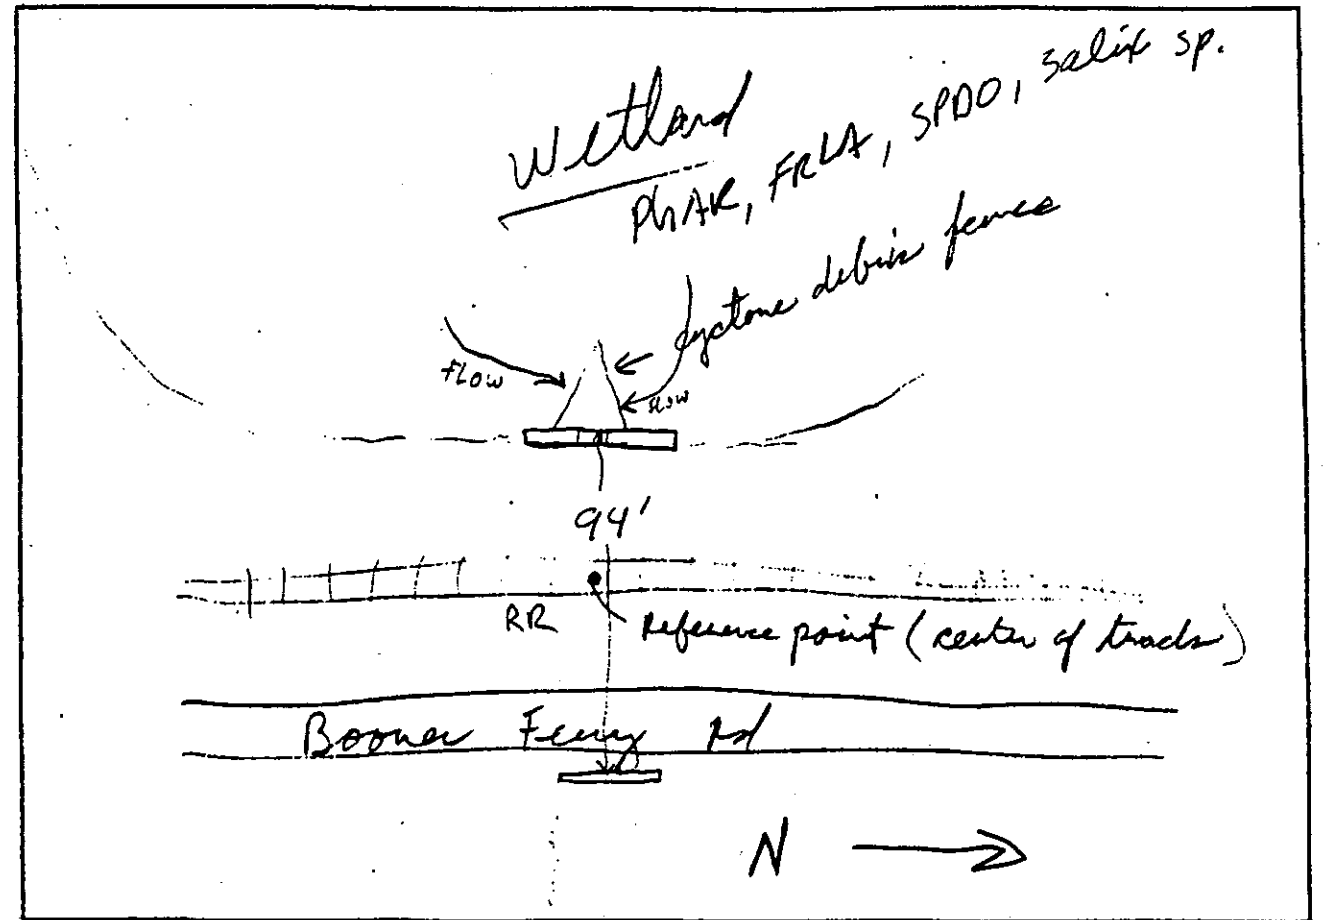 Wetland
PhAR, FRLA, SPDO, Salix sp.
cyclone debris fence
FLOW
FLOW
94'
RR
Reference point (center of tracks)
Boones Ferry Rd
N